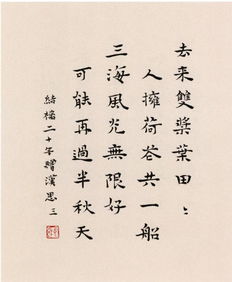 去来雙槳葉田〻
人擁荷花共一船
三海風光無限好
可能再過半秋天
結褵二十年贈漢思 三